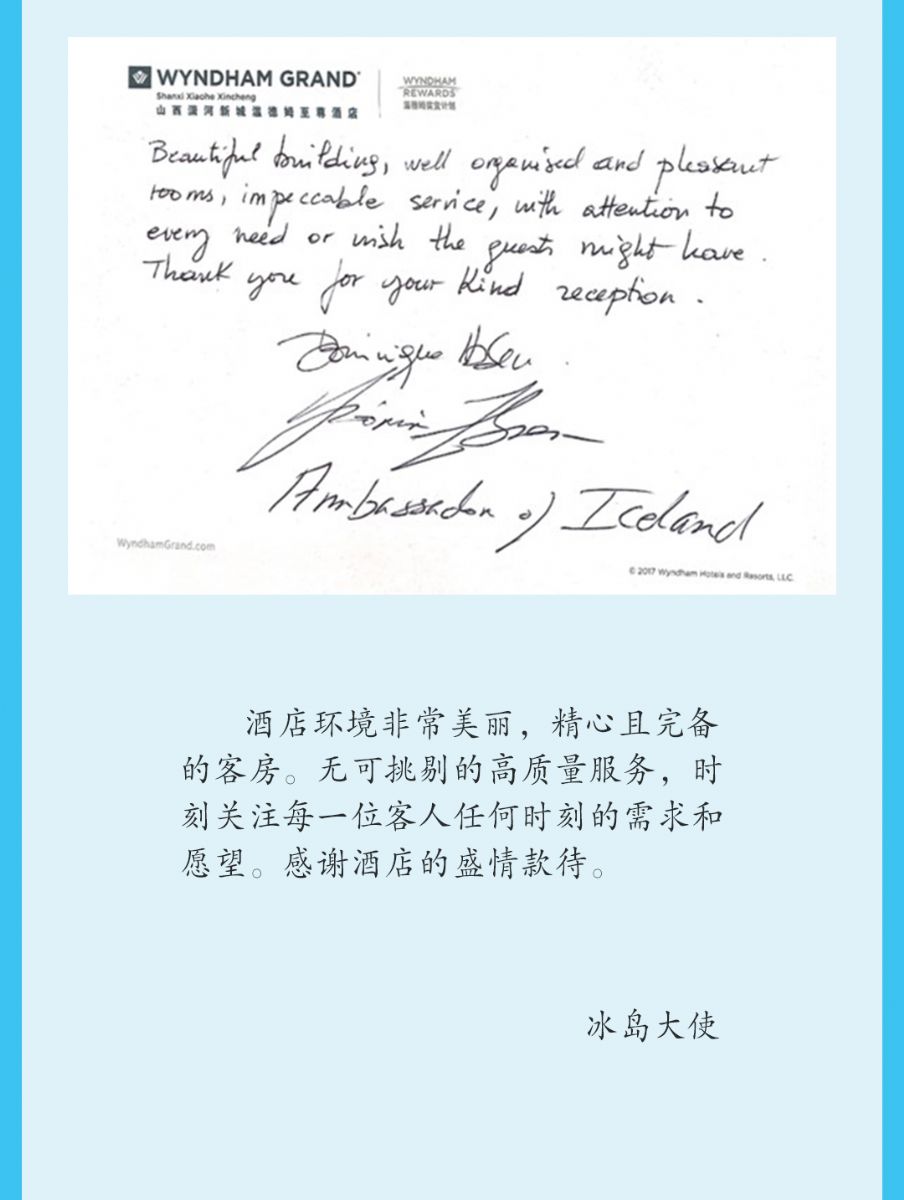 WYNDHAM GRAND
Shanxi Xiaohe Xincheng
山西潇河新城温德姆至尊酒店
WYNDHAM
REWARDS
温德姆奖赏计划
Beautiful building, well organised and pleasant
rooms, impeccable service, with attention to
every need or wish the guests might have.
Thank you for your kind reception.
Dominique
Ambassador of Iceland
WyndhamGrand.com
© 2017 Wyndham Hotels and Resorts, LLC.
酒店环境非常美丽，精心且完备
的客房。无可挑剔的高质量服务，时
刻关注每一位客人任何时刻的需求和
愿望。感谢酒店的盛情款待。
冰岛大使